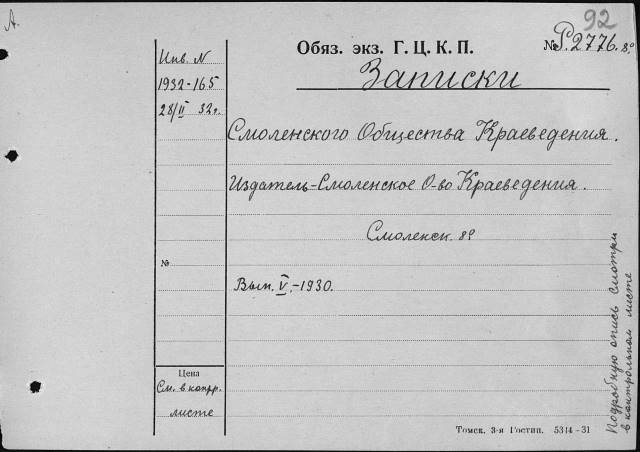 А.
92
Обяз. экз. Г. Ц. К. П.
№ Р.2776. 8°
Инв. N
1932-165
28/II 32г.
Записки
Смоленского Общества Краеведения.
Издатель-Смоленское О-во Краеведения.
Смоленск. 8°
№
Вып. V.-1930.
Цена
См. в контр.
листе
Подробную опись смотри
в контрольном листе
Томск. 3-я Гостип. 5344-31